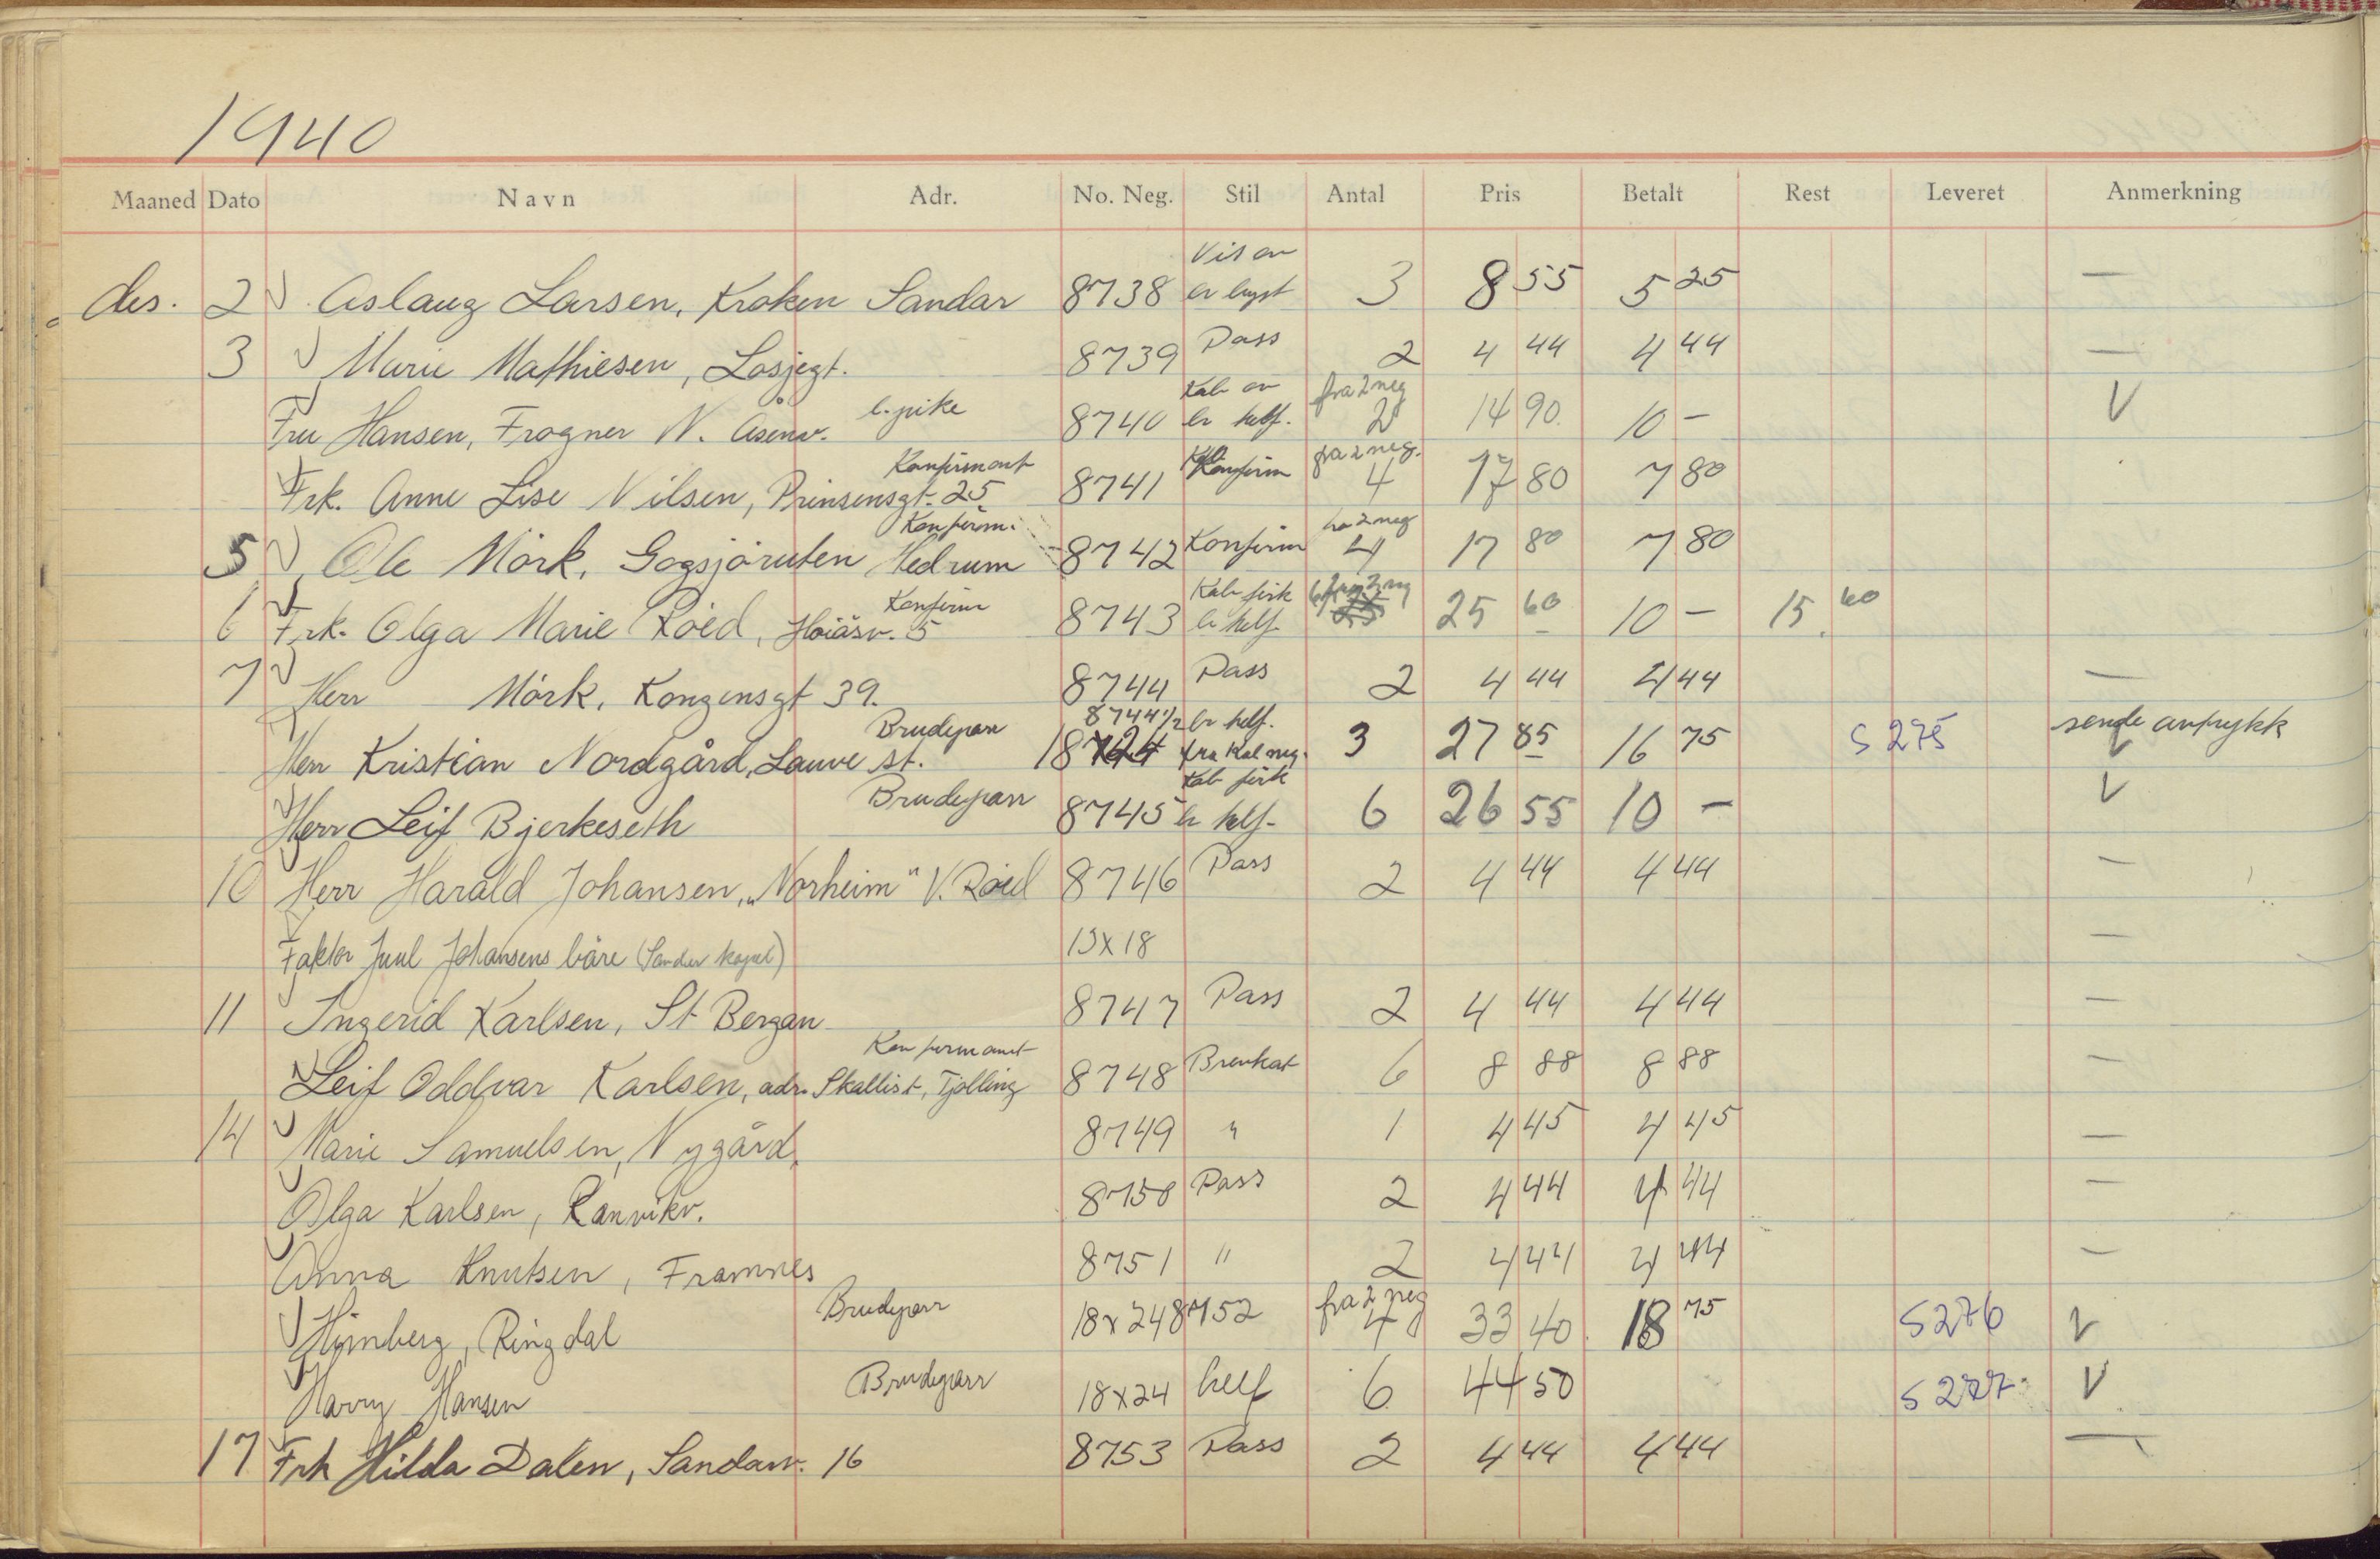 1940
Maaned Dato Navn Adr. No. Neg. Stil Antal Pris Betalt Rest Leveret Anmerkning
des. 2 Aslaug Larsen, Kroken Sandar 8738 Vis av br byst 3 8 55 5 25 —
3 Marie Mathiesen, Losjegt. 8739 Pass 2 4 44 4 44 —
Fru Hansen, Frogner N. Åsenv. l. pike 8740 Kab av br helf. fra 2 neg 2 14 90 10 — V
Frk. Anne Lise Nilsen, Prinsensgt. 25 Konfirmant 8741 Konfirm fra 2 neg. 4 17 80 7 80
5 Ole Mörk, Gogsjöruten Hedrum Konfirm. 8742 Konfirm fra 2 neg 4 17 80 7 80
6 Frk. Olga Marie Röed, Höiåsv. 5 Konfirm 8743 Kab firk br helf 6 25 60 10 — 15. 60
7 Herr Mörk, Kongensgt 39. 8744 Pass 2 4 44 4 44 —
Herr Kristian Nordgård, Lauve st. Brudepar 8744 1/2 18x24 br helf. fra Kab neg. 3 27 85 16 75 S 275 sende avtrykk V
Herr Leif Bjerkeseth Brudeparr 8745 Kab firk br helf- 6 26 55 10 — V
10 Herr Harald Johansen, „Norheim" V. Röed 8746 Pass 2 4 44 4 44 —
Faktor Juul Johansens båre (Sandar kapel) 13x18 —
11 Ingerid Karlsen, St. Bergan 8747 Pass 2 4 44 4 44 —
Leif Oddvar Karlsen, adr. Skallist, Tjölling Konfirmant 8748 Brevkat 6 8 88 8 88 —
14 Marie Samuelsen, Nygård, 8749 " 1 4 45 4 45 —
Olga Karlsen, Ranvikv. 8750 Pass 2 4 44 4 44 —
Anna Knutsen, Framnes 8751 " 2 4 44 4 44 —
Ringdal Brudeparr 18x24 8752 fra 2 neg 4 33 40 18 75 S 276 V
Harry Hansen Brudeparr 18x24 helf 6 44 50 S 277 V
17 Frk Hilda Dalen, Sandarv. 16 8753 Pass 2 4 44 4 44 —